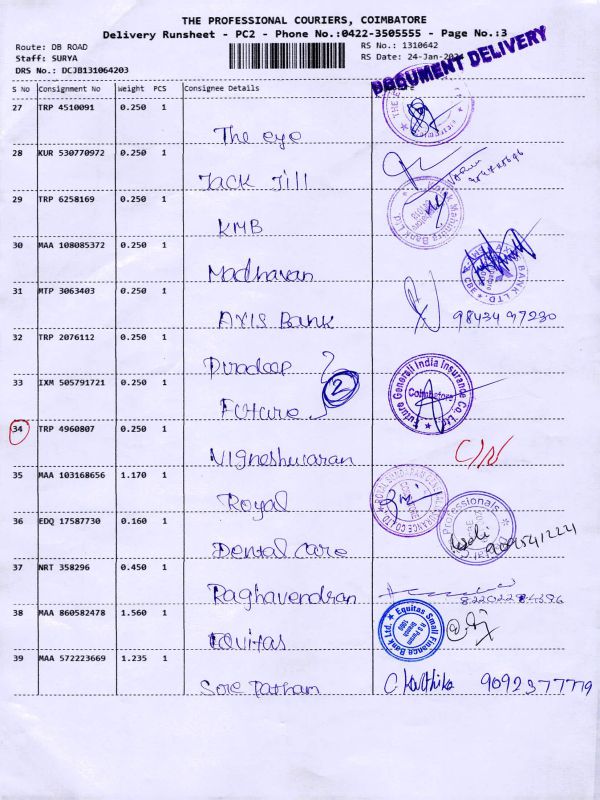 THE PROFESSIONAL COURIERS, COIMBATORE
Delivery Runsheet - PC2 - Phone No.:0422-3505555 - Page No.:3
Route: DB ROAD
RS No.: 1310642
Staff: SURYA
RS Date: 24-Jan-
DRS No.: DCJB131064203
DOCUMENT DELIVERY
S No Consignment No Weight PCS Consignee Details
27 TRP 4510091 0.250 1
The eye
28 KUR 530770972 0.250 1
Jack Jill
29 TRP 6258169 0.250 1
KMB
Mahindra Bank Ltd.
30 MAA 108085372 0.250 1
Madhavan
BANK LTD. CBE
31 MTP 3063403 0.250 1
AXIS Bank
98434 97230
32 TRP 2076112 0.250 1
33 IXM 505791721 0.250 1
Future
2
Future Generali India Insurance Co. Ltd
Coimbatore
34 TRP 4960807 0.250 1
Vigneshwaran
C/N
35 MAA 103168656 1.170 1
Royal
ROYAL SUNDARAM INSURANCE CO LTD
36 EDQ 17587730 0.160 1
Dental Care
Professionals
9095412221
37 NRT 358296 0.450 1
Raghavendran
38 MAA 860582478 1.560 1
Equitas
Equitas Small Finance Bank Ltd.
39 MAA 572223669 1.235 1
C Karthika 9092377719